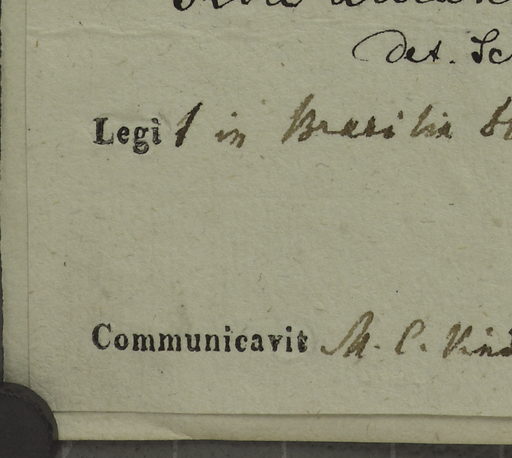 det. Sc
Legit in Brasilia
Communicavit M. C. Vind